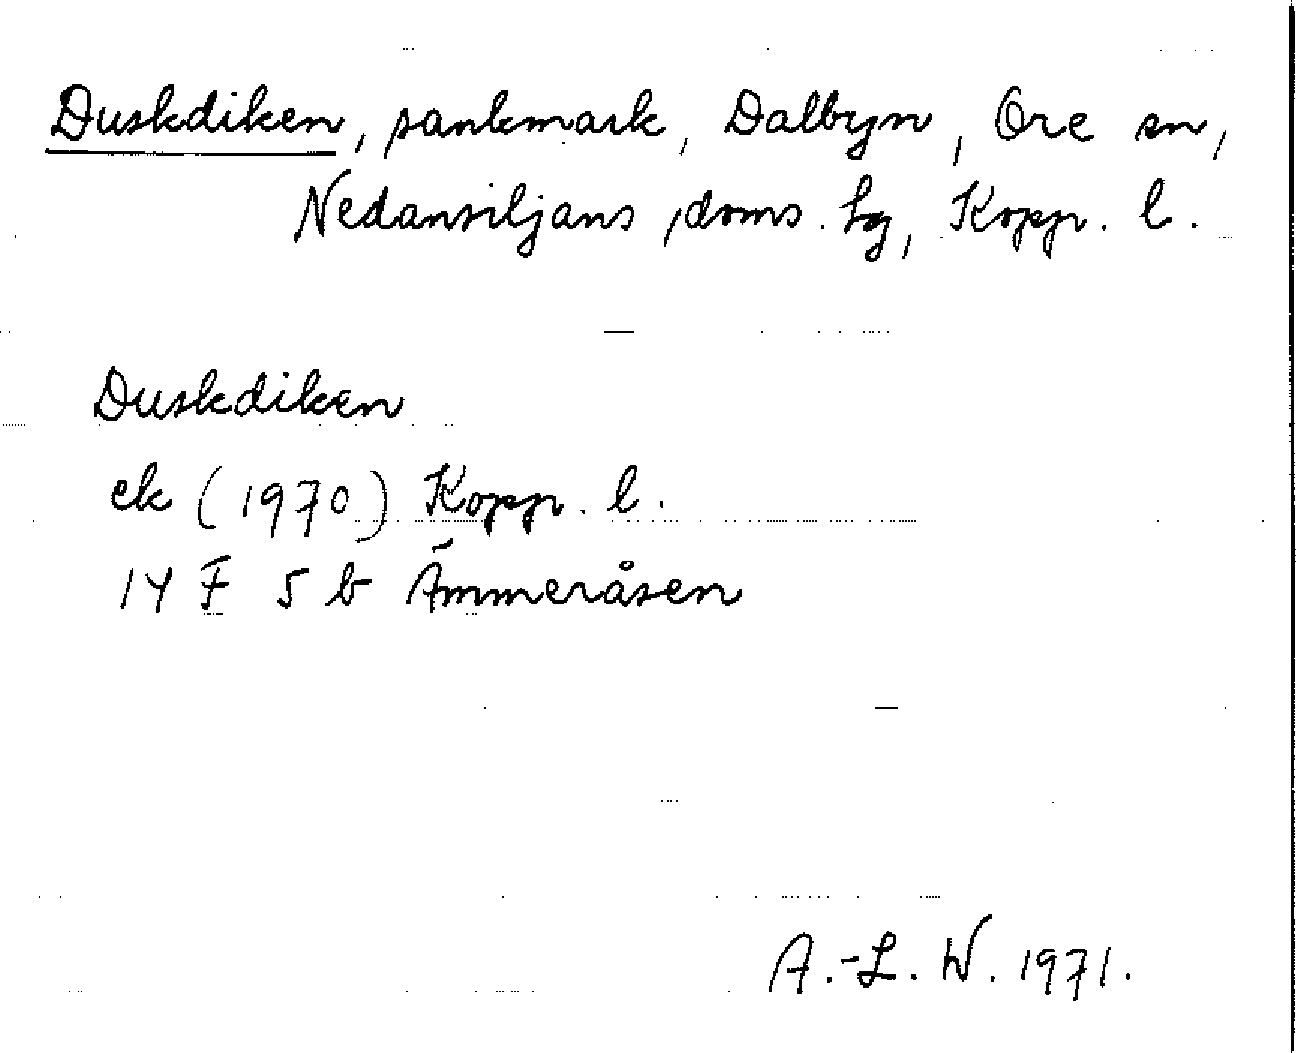 Duskdiken, sankmark, Dalbyn, Ore sn,
Nedansiljans doms. hg, Kopp. l.
Duskdiken
ek (1970) Kopp. l.
14 F 5 b Ämmeråsen
A.-L. W. 1971.